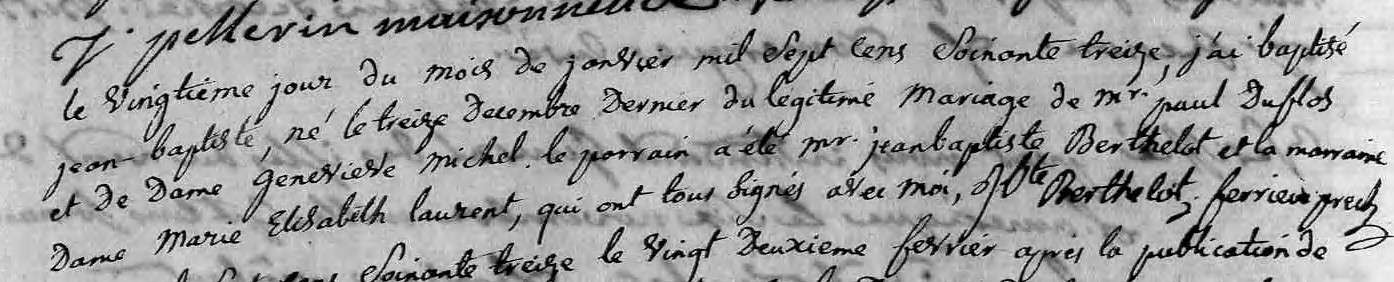 J. pellerin maisonneuve
le vingtiéme jour du mois de janvier mil sept cens soixante treize, j'ai baptisé
jean-baptiste, né le treize Decembre Dernier du legitime mariage de mr. paul Duflos
et de Dame genevieve michel. le parrain a été mr. jean baptiste Berthelot et la marraine
Dame Marie Elisabeth laurent, qui ont tous signés avec moi, Bte Berthelot, ferrieu
soixante treize le vingt Deuxieme fevrier après la publication de